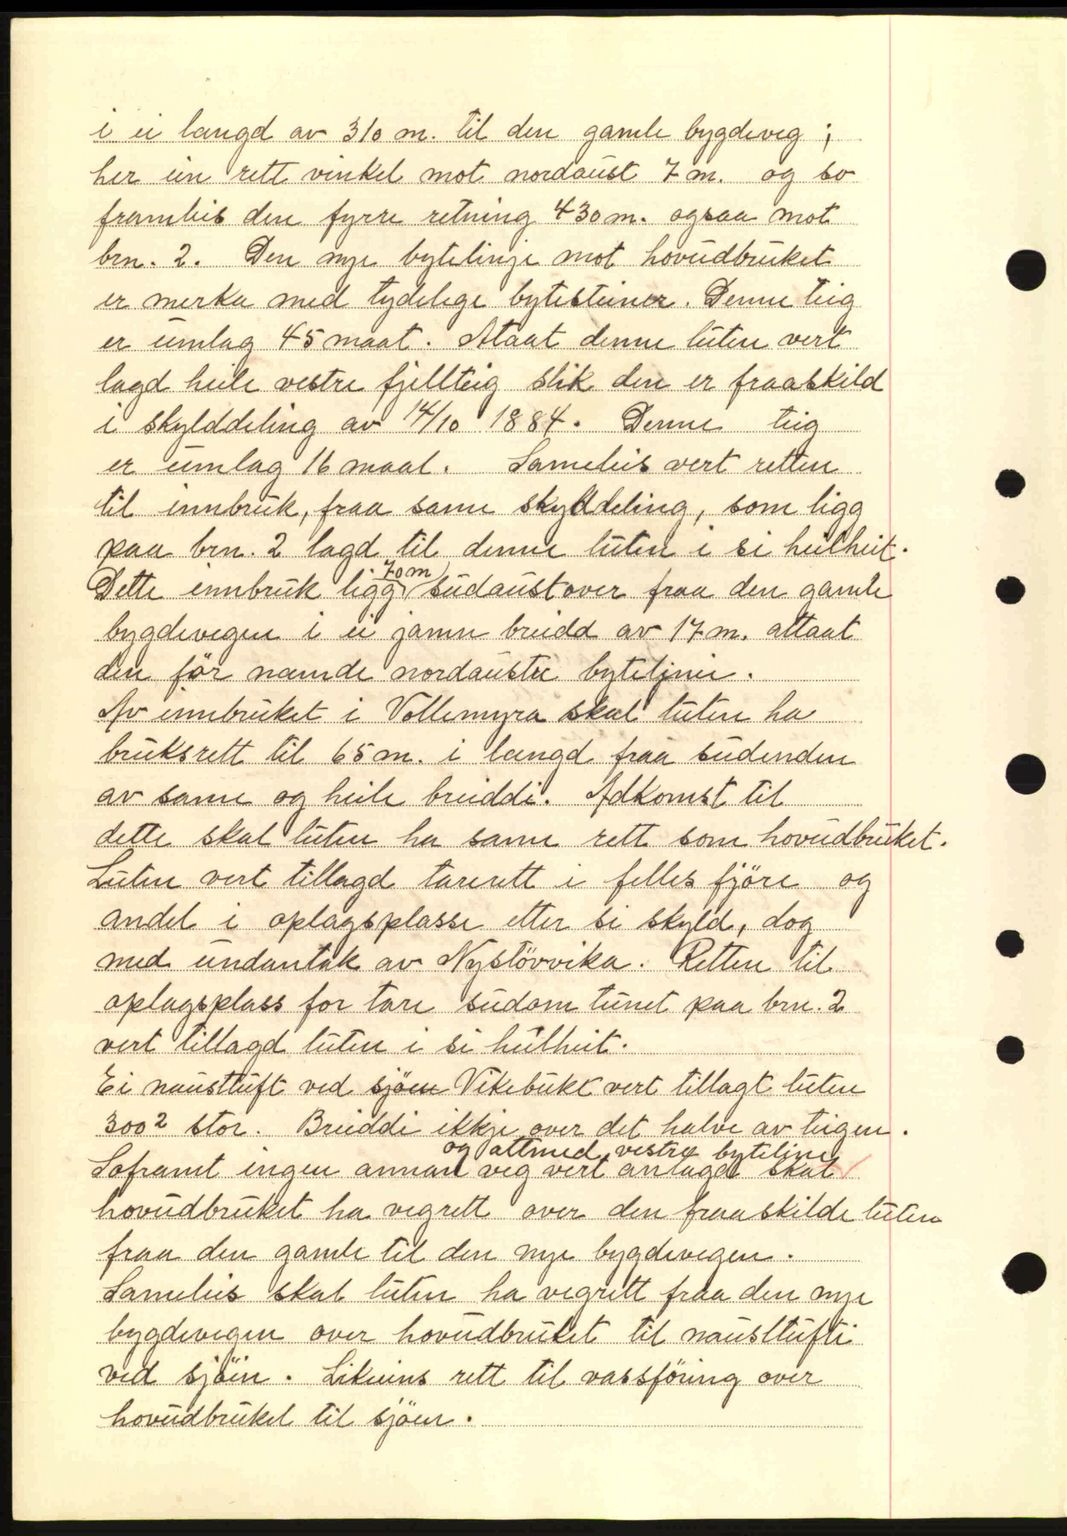 i ei længd av 310 m. til den gamle bygdeveg;
her ein rett vinkel mot nordaust 7 m. og so
framleis den fyrre retning 430 m. ogsaa mot
brn. 2. Den nye bytelinje mot hovudbruket
er merka med tydelege bytesteiner. Denne teig
er umlag 45 maal. Ataat denne luten vert
lagd heile vestre fjellteig slik den er fraaskild
i skylddeling av 14/10 1884. Denne teig
er umlag 16 maal. Sameleis vert retten
til innbruk, fraa same skylddeling, som ligg
paa brn. 2 lagd til denne luten i si heilheit.
70 m
Dette innbruk ligg sudaustover fraa den gamle
bygdevegen i ei jamn breidd av 17 m. attaat
den för næmde nordaustre byteljnie.
Av innbruket i Vollemyra skal luten ha
bruksrett til 65 m. i længd fraa sudenden
av same og heile breiddi. Adkomst til
dette skal luten ha same rett som hovudbruket.
Luten vert tillagd tarerett i felles fjöre og
andel i oplagsplasse etter si skyld, dog
med undantak av Nystövvika. Retten til
oplagsplass for tare sudom tunet paa brn. 2
vert tillagd luten i si heilheit.
Ei nausttuft ved sjöen Vikebukt vert tillagt luten
300² stor. Breiddi ikkje over det halve av teigen.
og attmed vestre byteline
Soframt ingen annan veg vert anlagd skal
hovudbruket ha vegrett over den fraaskilde luten
fraa den gamle til den nye bygdevegen.
Sameleis skal luten ha vegrett fraa den nye
bygdevegen over hovudbruket til nausttufti
ved sjöin. Likeeins rett til vassföring over
hovudbruket til sjöen.